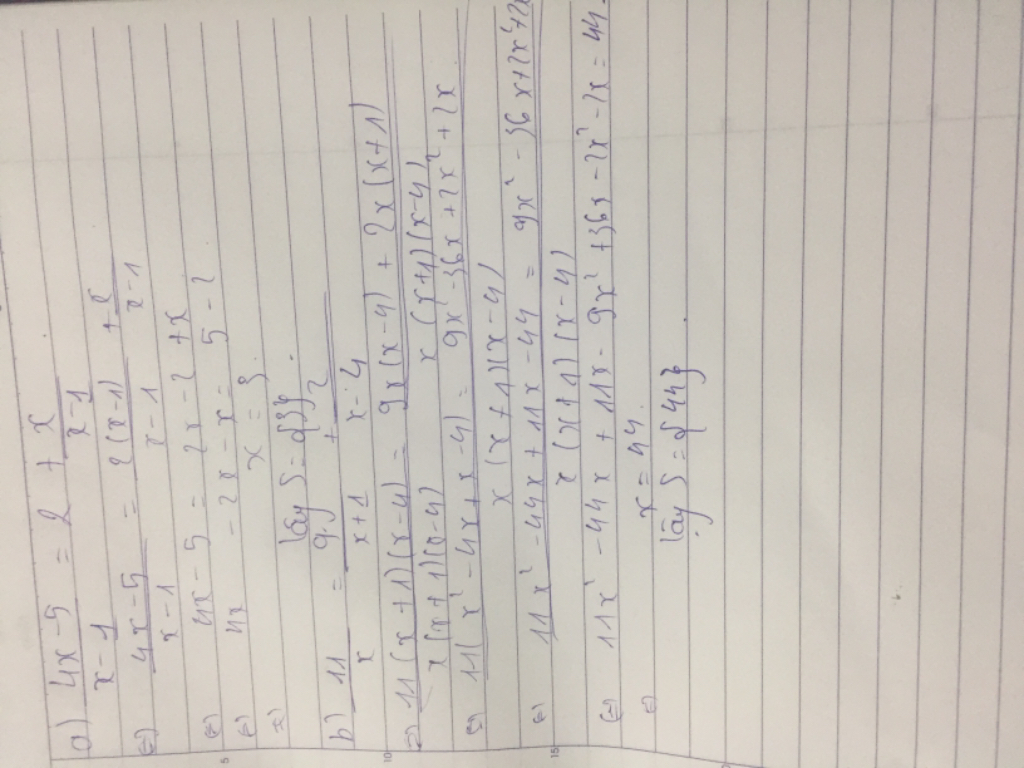 a) (4x-5)/(x-1) = 2 + x/(x-1)
(=) (4x-5)/(x-1) = 2(x-1)/(x-1) + x/(x-1)
(=) 4x - 5 = 2x - 2 + x
(=) 4x - 2x - x = 5 - 2
=) x = 3
Vậy S = {3}.
b) 11/x = 9/(x+1) + 2/(x-4)
(=) 11(x+1)(x-4)/x(x+1)(x-4) = 9x(x-4) + 2x(x+1)/x(x+1)(x-4)
(=) 11(x² - 4x + x - 4)/x(x+1)(x-4) = 9x² - 36x + 2x² + 2x
(=) 11x² - 44x + 11x - 44/x(x+1)(x-4) = 9x² - 36x + 2x² + 2x
(=) 11x² - 44x + 11x - 9x² + 36x - 2x² - 2x = 44
=) x = 44.
Vậy S = {44}.
5
10
15